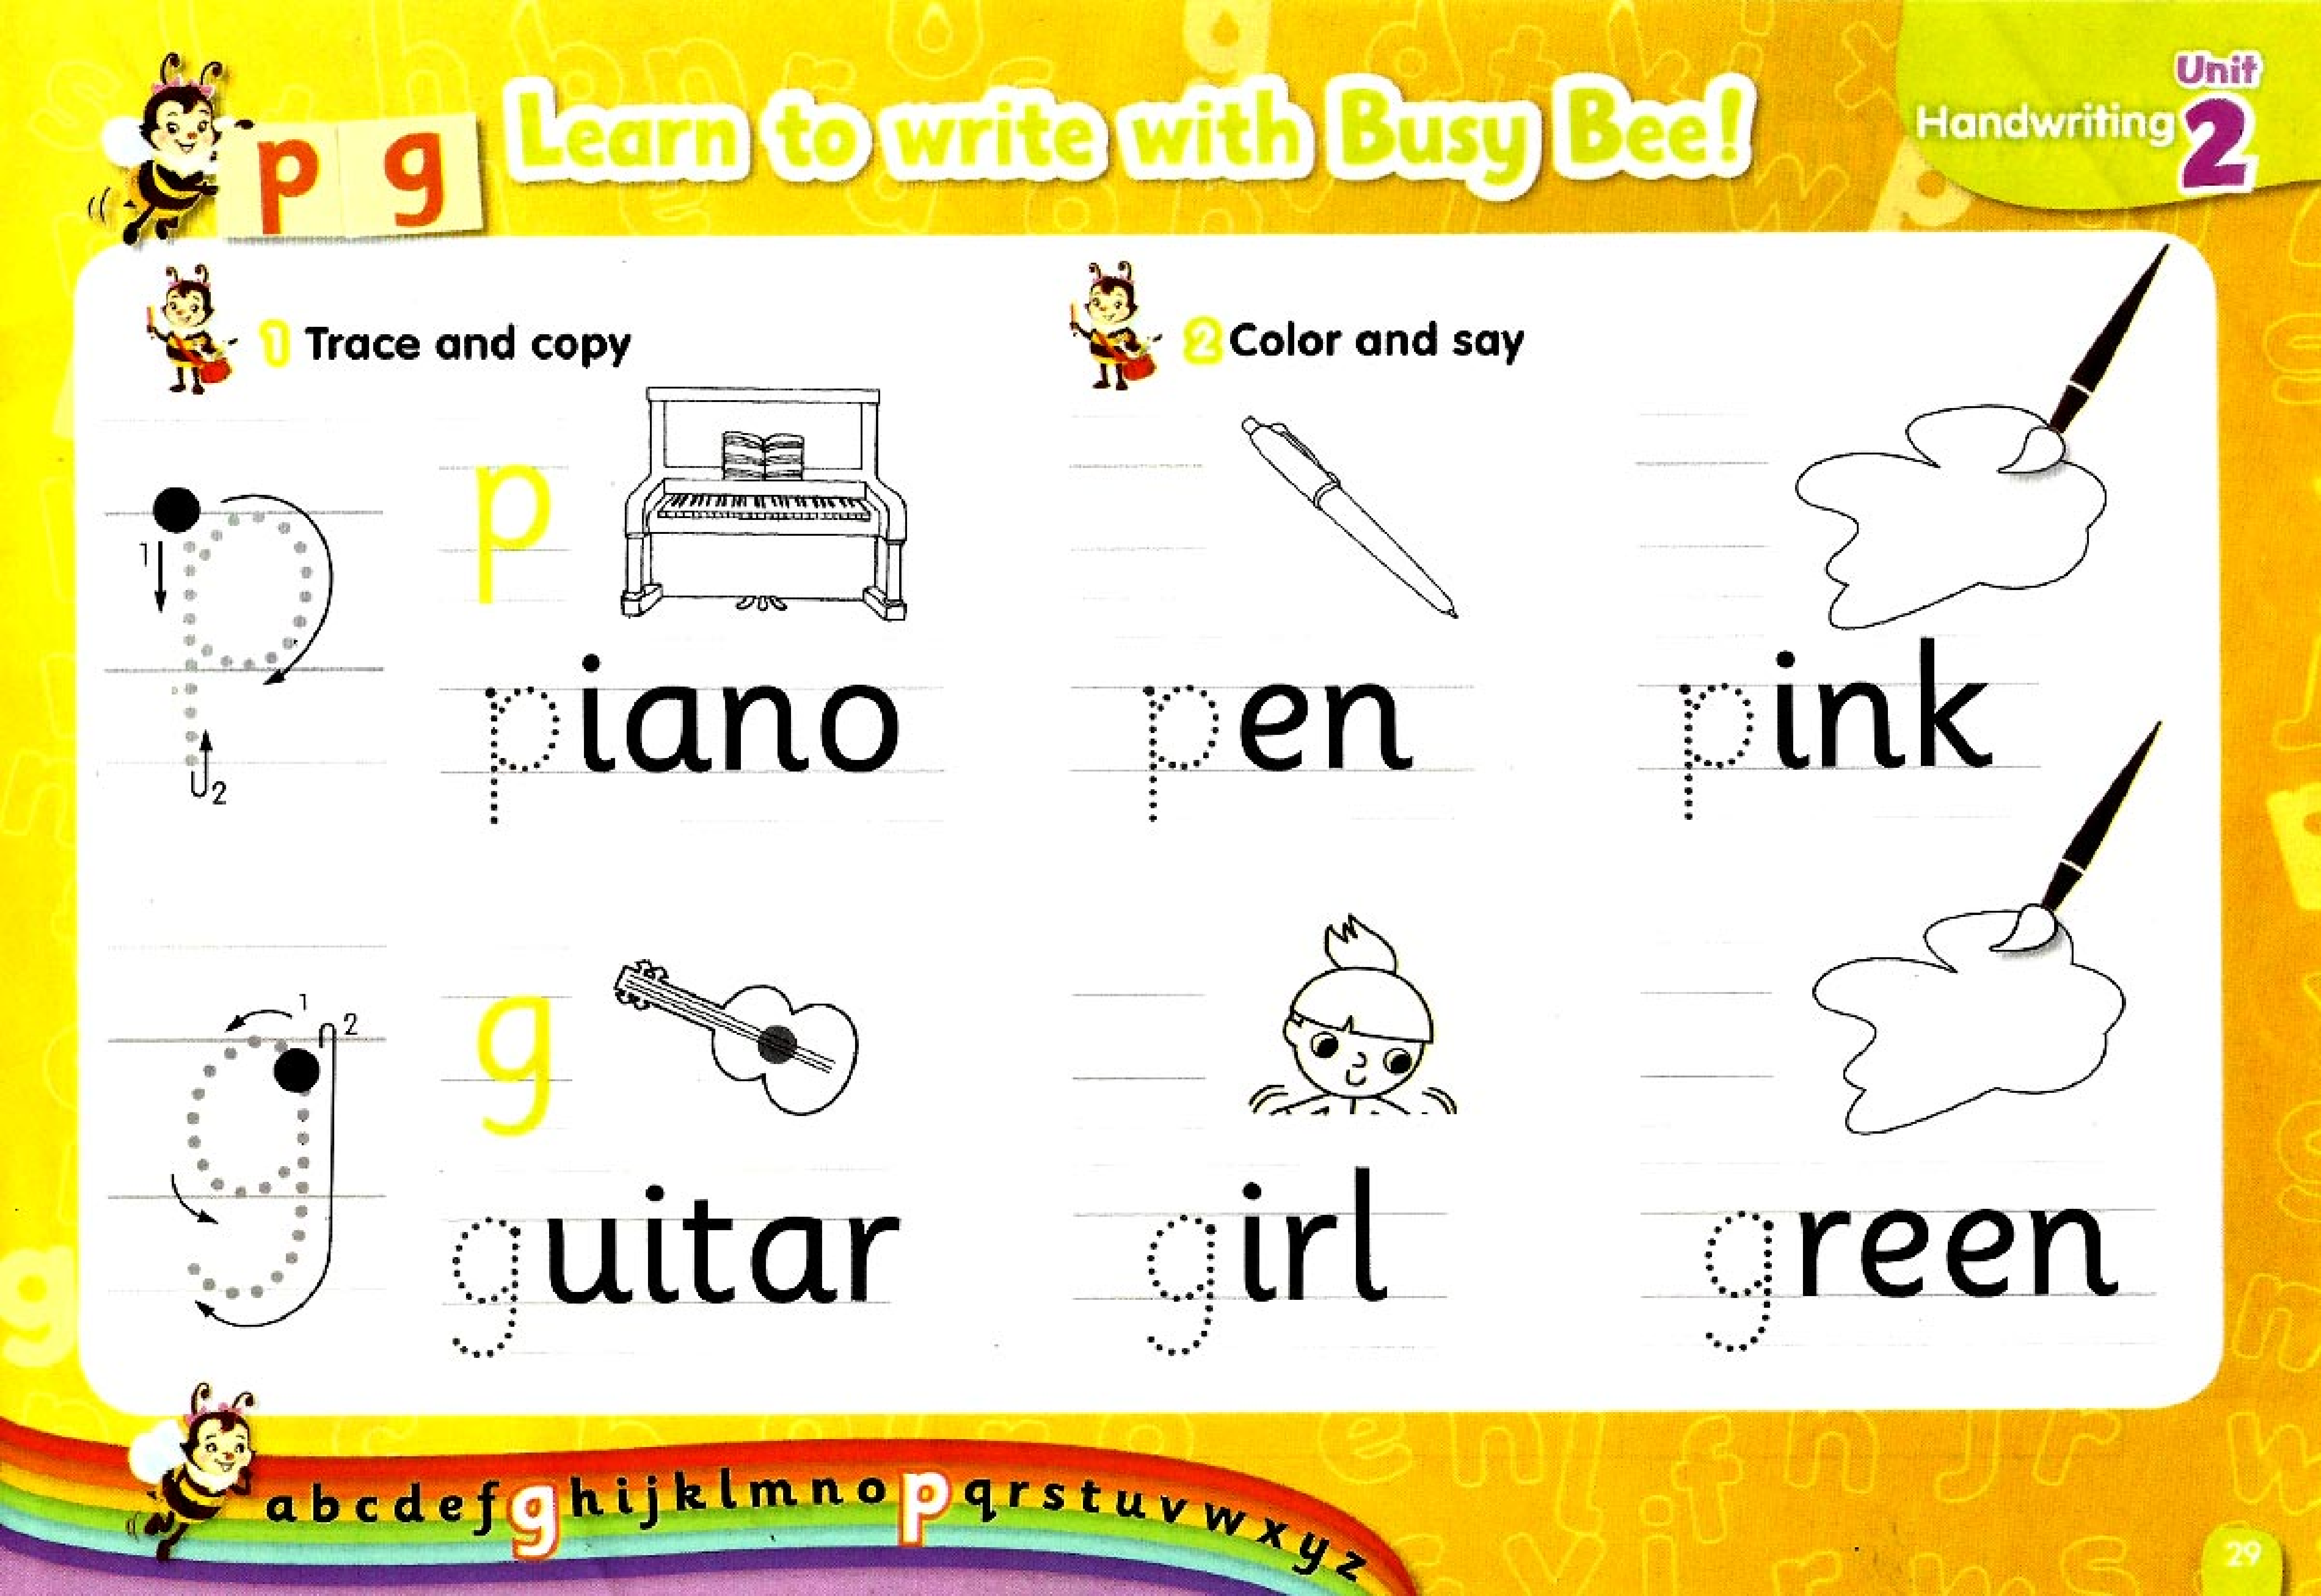 p g
Learn to write with Busy Bee!
Unit
Handwriting 2
1 Trace and copy
2 Color and say
1
2
p
piano
pen
pink
1
2
g
guitar
girl
green
abcdefghijklmnopqrstuvwxyz
29